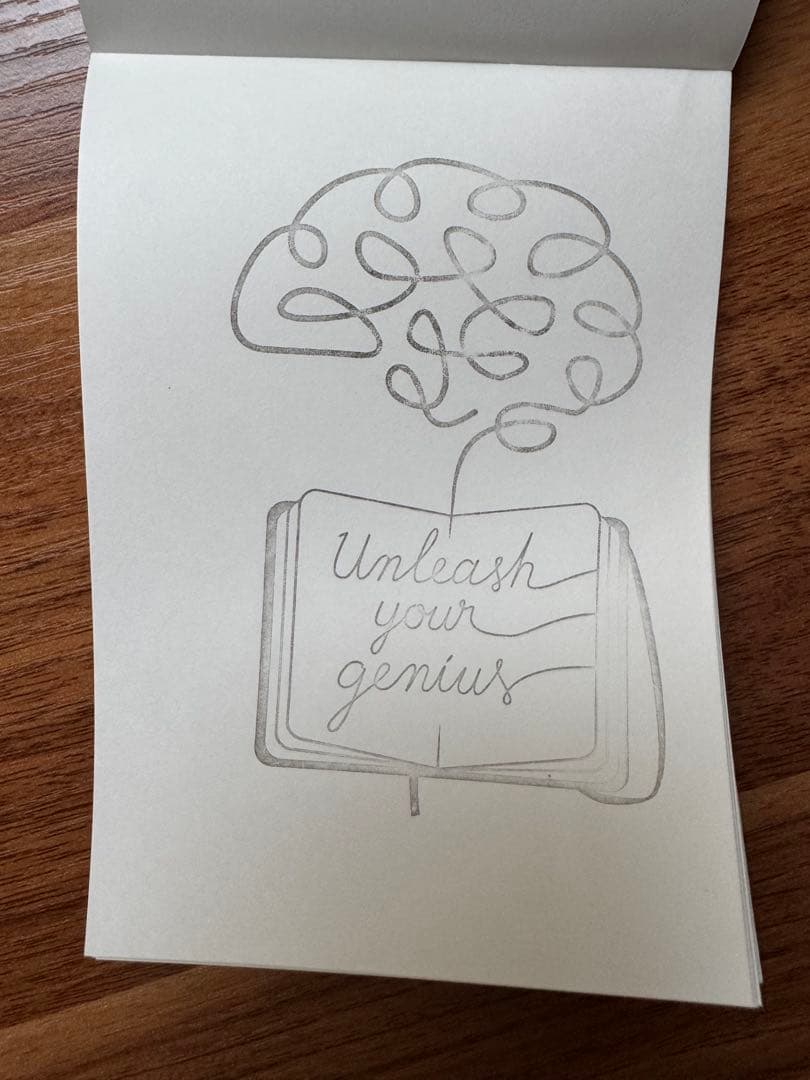 Unleash
your
genius